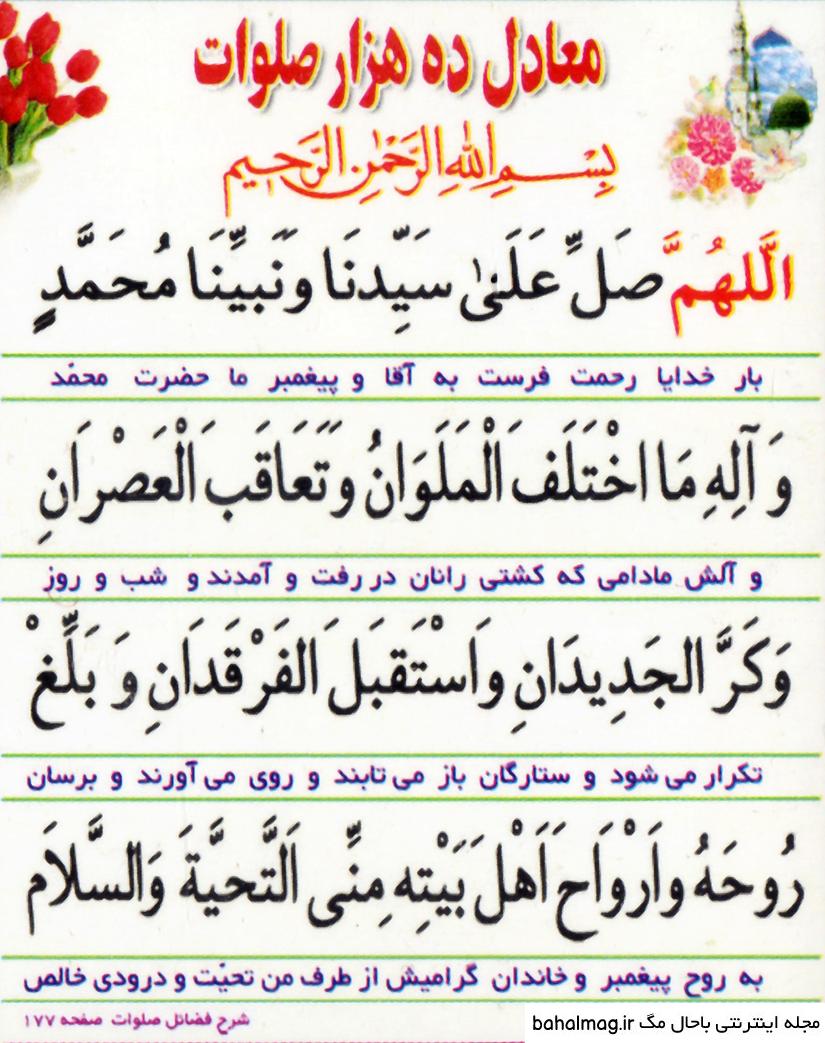 معادل ده هزار صلوات
بِسْمِ اللهِ الرَّحْمٰنِ الرَّحیم
اللَّهُمَّ صَلِّ عَلَىٰ سَيِّدِنَا وَنَبِيِّنَا مُحَمَّدٍ
بار خدایا رحمت فرست به آقا و پیغمبر ما حضرت محمّد
وَ آلِهِ مَا اخْتَلَفَ الْمَلَوَانُ وَتَعَاقَبَ الْعَصْرَانِ
و آلش مادامی که کشتی رانان در رفت و آمدند و شب و روز
وَكَرَّ الجَدِيدَانِ وَاسْتَقبَلَ الفَرْقَدَانِ وَ بَلِّغْ
تکرار می شود و ستارگان باز می تابند و روی می آورند و برسان
رُوحَهُ وَاَرْوَاحَ اَهْلَ بَيْتِهِ مِنِّى اَلتَّحيَّةَ وَالسَّلاَم
به روح پیغمبر و خاندان گرامیش از طرف من تحیّت و درودی خالص
شرح فضائل صلوات صفحه ۱۷۷
مجله اینترنتی باحال مگ bahalmag.ir